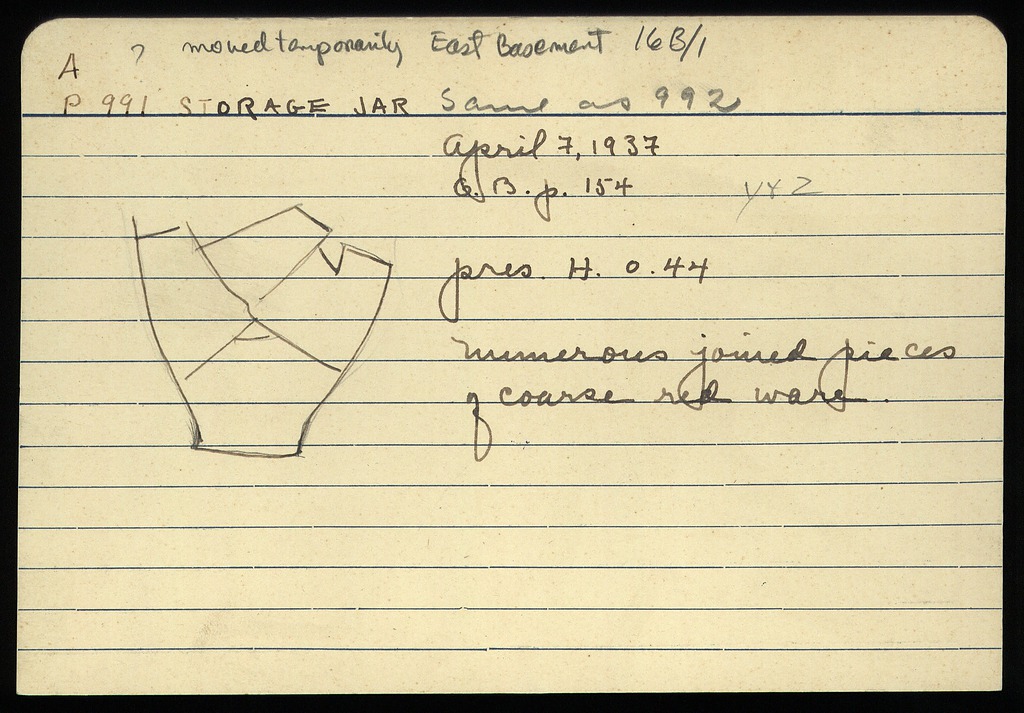 ? moved temporarily East Basement 16B/1
A
P 991 STORAGE JAR Same as 992
April 7, 1937
G. B. p. 154
pres. H. 0.44
Numerous joined pieces
of coarse red ware.